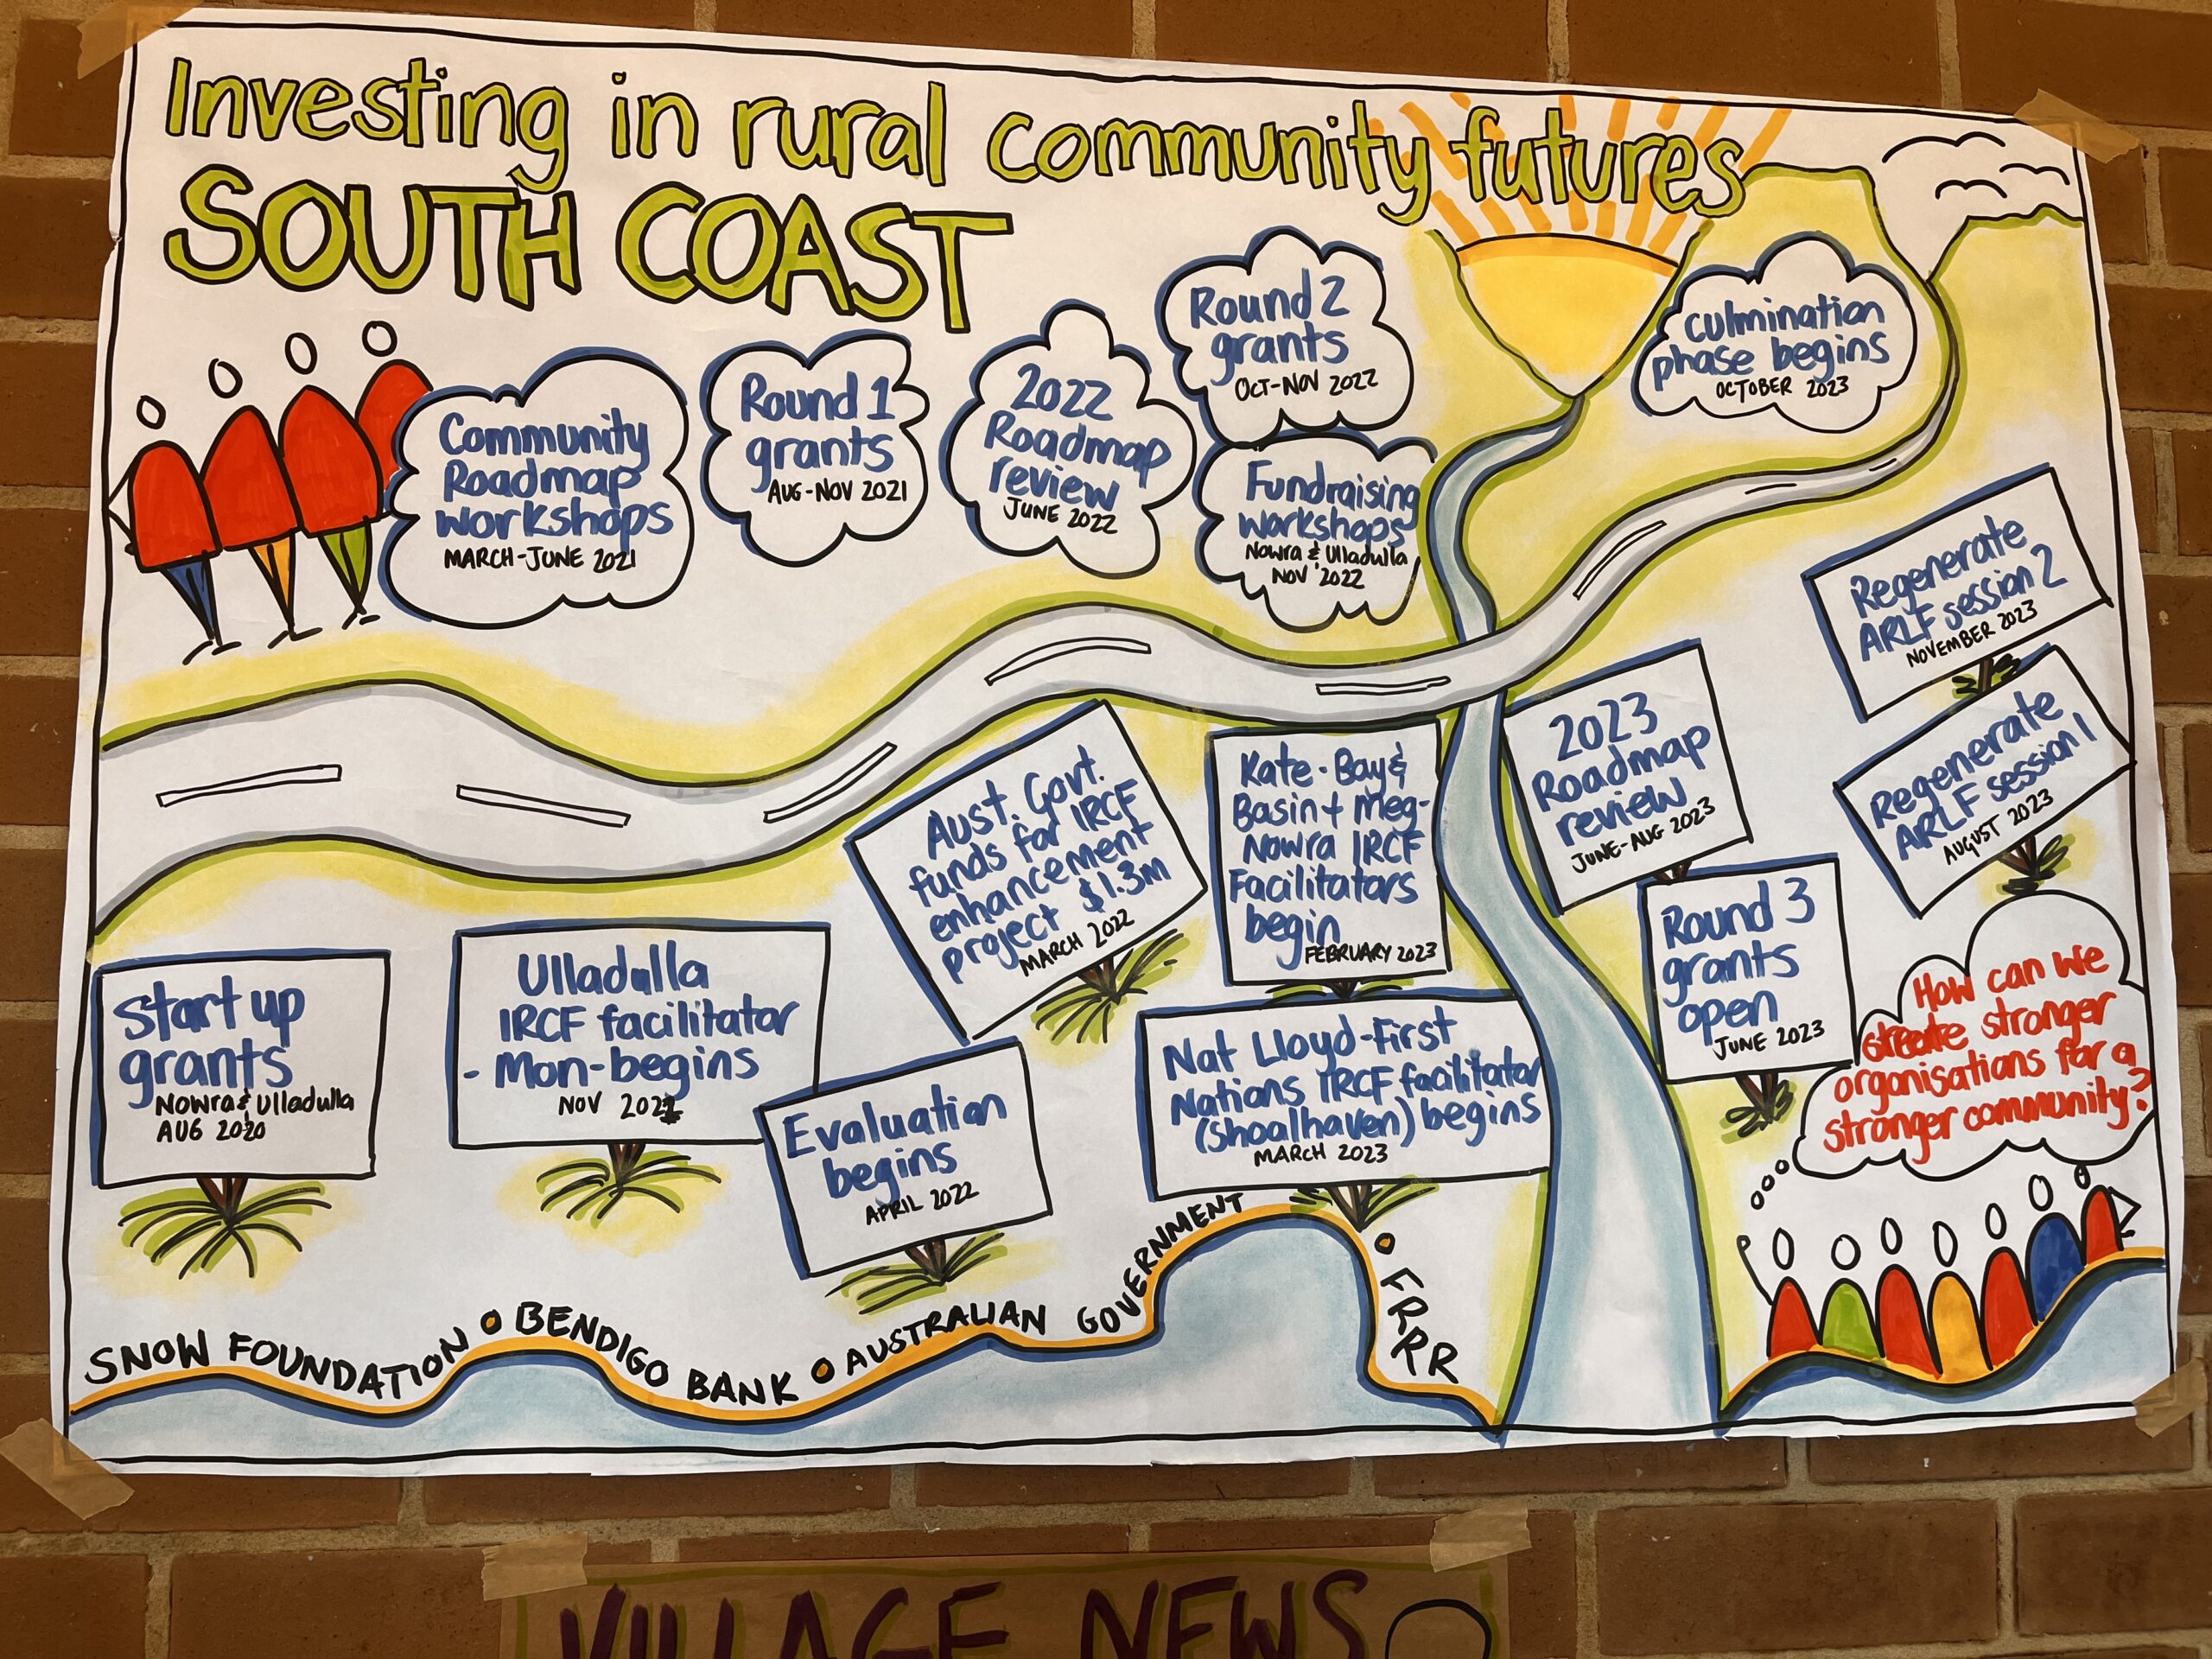 Investing in rural community futures
SOUTH COAST
Community
Roadmap
workshops
MARCH-JUNE 2021
Round 1
grants
AUG-NOV 2021
2022
Roadmap
review
JUNE 2022
Round 2
grants
OCT-NOV 2022
Fundraising
workshops
Nowra & Ulladulla
NOV '2022
culmination
phase begins
OCTOBER 2023
Start up
grants
Nowra & Ulladulla
AUG 2020
Ulladulla
IRCF facilitator
- Mon-begins
NOV 2021
Aust. Govt.
funds for IRCF
enhancement
project $1.3m
MARCH 2022
Evaluation
begins
APRIL 2022
Kate-Bay &
Basin + Meg-
Nowra IRCF
Facilitators
begin
FEBRUARY 2023
Nat Lloyd-First
Nations IRCF facilitator
(Shoalhaven) begins
MARCH 2023
2023
Roadmap
review
JUNE-AUG 2023
Round 3
grants
open
JUNE 2023
Regenerate
ARLF session 2
NOVEMBER 2023
Regenerate
ARLF session 1
AUGUST 2023
How can we
create stronger
organisations for a
stronger community?
SNOW FOUNDATION • BENDIGO BANK • AUSTRALIAN GOVERNMENT • FRRR
VILLAGE NEWS